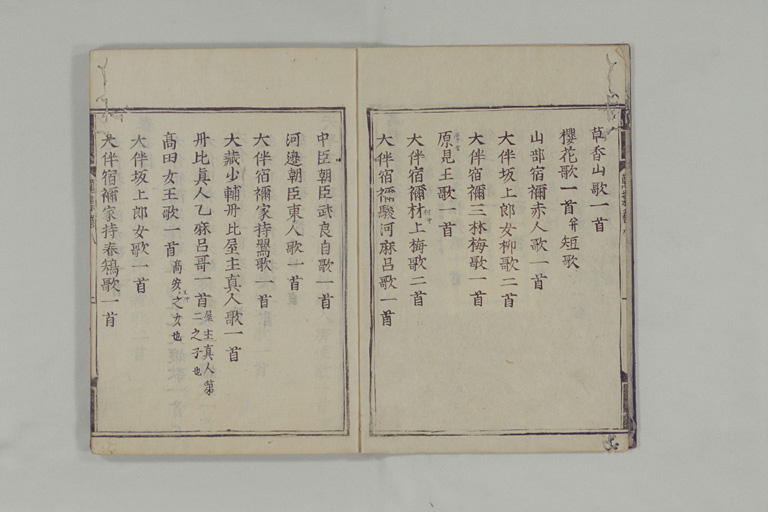 草香山歌一首
櫻花歌一首并短歌
山部宿祢赤人歌一首
大伴坂上郎女柳歌二首
大伴宿祢三林梅歌一首
原見王歌一首
大伴宿祢村上梅歌二首
大伴宿祢駿河麻呂歌一首
中臣朝臣武良自歌一首
河邊朝臣東人歌一首
大伴宿祢家持鸎歌一首
大藏少輔丹比屋主真人歌一首
丹比真人乙麻呂哥一首屋主真人第二之子也
髙田女王歌一首髙安之女也
大伴坂上郎女歌一首
大伴宿祢家持春鴙歌一首